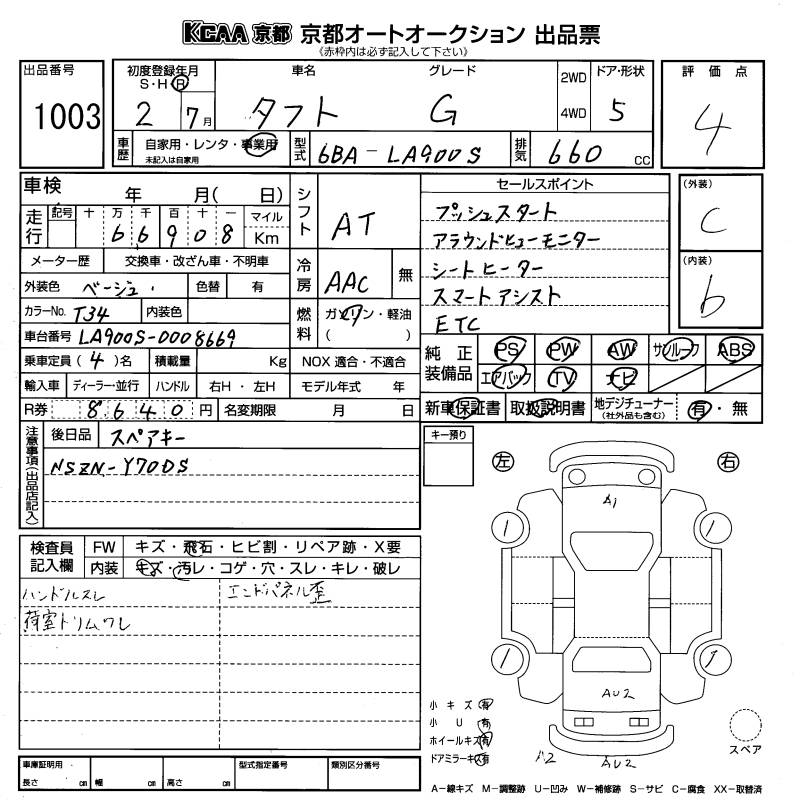 KCAA 京都 京都オートオークション 出品票
《赤枠内は必ず記入して下さい》
出品番号 1003
初度登録年月 S・H・R 2 7月
車名 タフト
グレード G
2WD 4WD
ドア・形状 5
評価点 4
車歴 自家用・レンタ・事業用 未記入は自家用
型式 6BA-LA900S
排気 660 CC
車検 年 月( 日)
走行 記号 十 万 千 百 十 一 マイル Km
6 6 9 0 8
メーター歴 交換車・改ざん車・不明車
外装色 ベージュ 色替 有
カラーNo. T34 内装色
車台番号 LA900S-0008669
乗車定員 (4)名 積載量 Kg
輸入車 ディーラー・並行 ハンドル 右H・左H
R券 8640円 名変期限 月 日
シフト AT
冷房 AAC 無
燃料 ガソリン・軽油 ( )
NOX 適合・不適合
モデル年式 年
セールスポイント
プッシュスタート
アラウンドビューモニター
シートヒーター
スマートアシスト
ETC
(外装) C
(内装) b
純正装備品 PS PW AW サンルーフ ABS
エアバック TV ナビ
新車保証書 取扱説明書 地デジチューナー (社外品も含む) 有・無
注意事項(出品店記入)
後日品 スペアキー
NSZN-Y70DS
キー預り
左 右
A1
検査員記入欄
FW キズ・飛石・ヒビ割・リペア跡・X要
内装 キズ・汚レ・コゲ・穴・スレ・キレ・破レ
ハンドルスレ
荷室トリムワレ
エンドパネル歪
AU2
小キズ 有
小U 有
ホイールキズ 有
ドアミラーキズ 有
A2
AU2
スペア
車庫証明用 長さ cm 幅 cm 高さ cm
型式指定番号
類別区分番号
A-線キズ M-調整跡 U-凹み W-補修跡 S-サビ C-腐食 XX-取替済